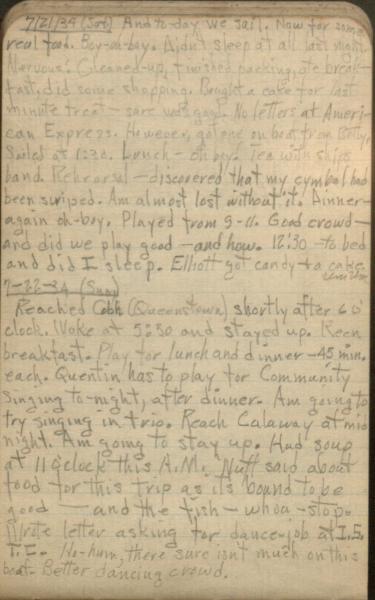 7/21/34 (Sat) And to-day we sail. Now for some
real food. Boy-oh-boy. Didn't sleep at all last night.
Nervous. Cleaned-up, finished packing, ate break-
fast, did some shopping. Bought a cake for last
minute treat - sure was good. No letters at Ameri-
can Express. However, got one on boat from Betty.
Sailed at 1:30. Lunch - oh boy. Tea with ships
band. Rehearsal - discovered that my cymbal had
been swiped. Am almost lost without it. Dinner-
again oh-boy. Played from 9-11. Good crowd -
and did we play good - and how. 12:30 - to bed
and did I sleep. Elliott got candy to a cake
7-22-34 (Sun)
Reached Cobh (Queenstown) shortly after 6 o'
clock. Woke at 5:30 and stayed up. Keen
breakfast. Play for lunch and dinner - 45 min.
each. Quentin has to play for Community
Singing to-night, after dinner. Am going to
try singing in trio. Reach Calaway at mid
night. Am going to stay up. Had soup
at 11 o'clock this A.M. Nuff said about
food for this trip as its bound to be
good — and the fish - whoa - stop.
Wrote letter asking for dance-job at I.S.
T.C. Ho-hum, there sure isn't much on this
boat. Better dancing crowd.